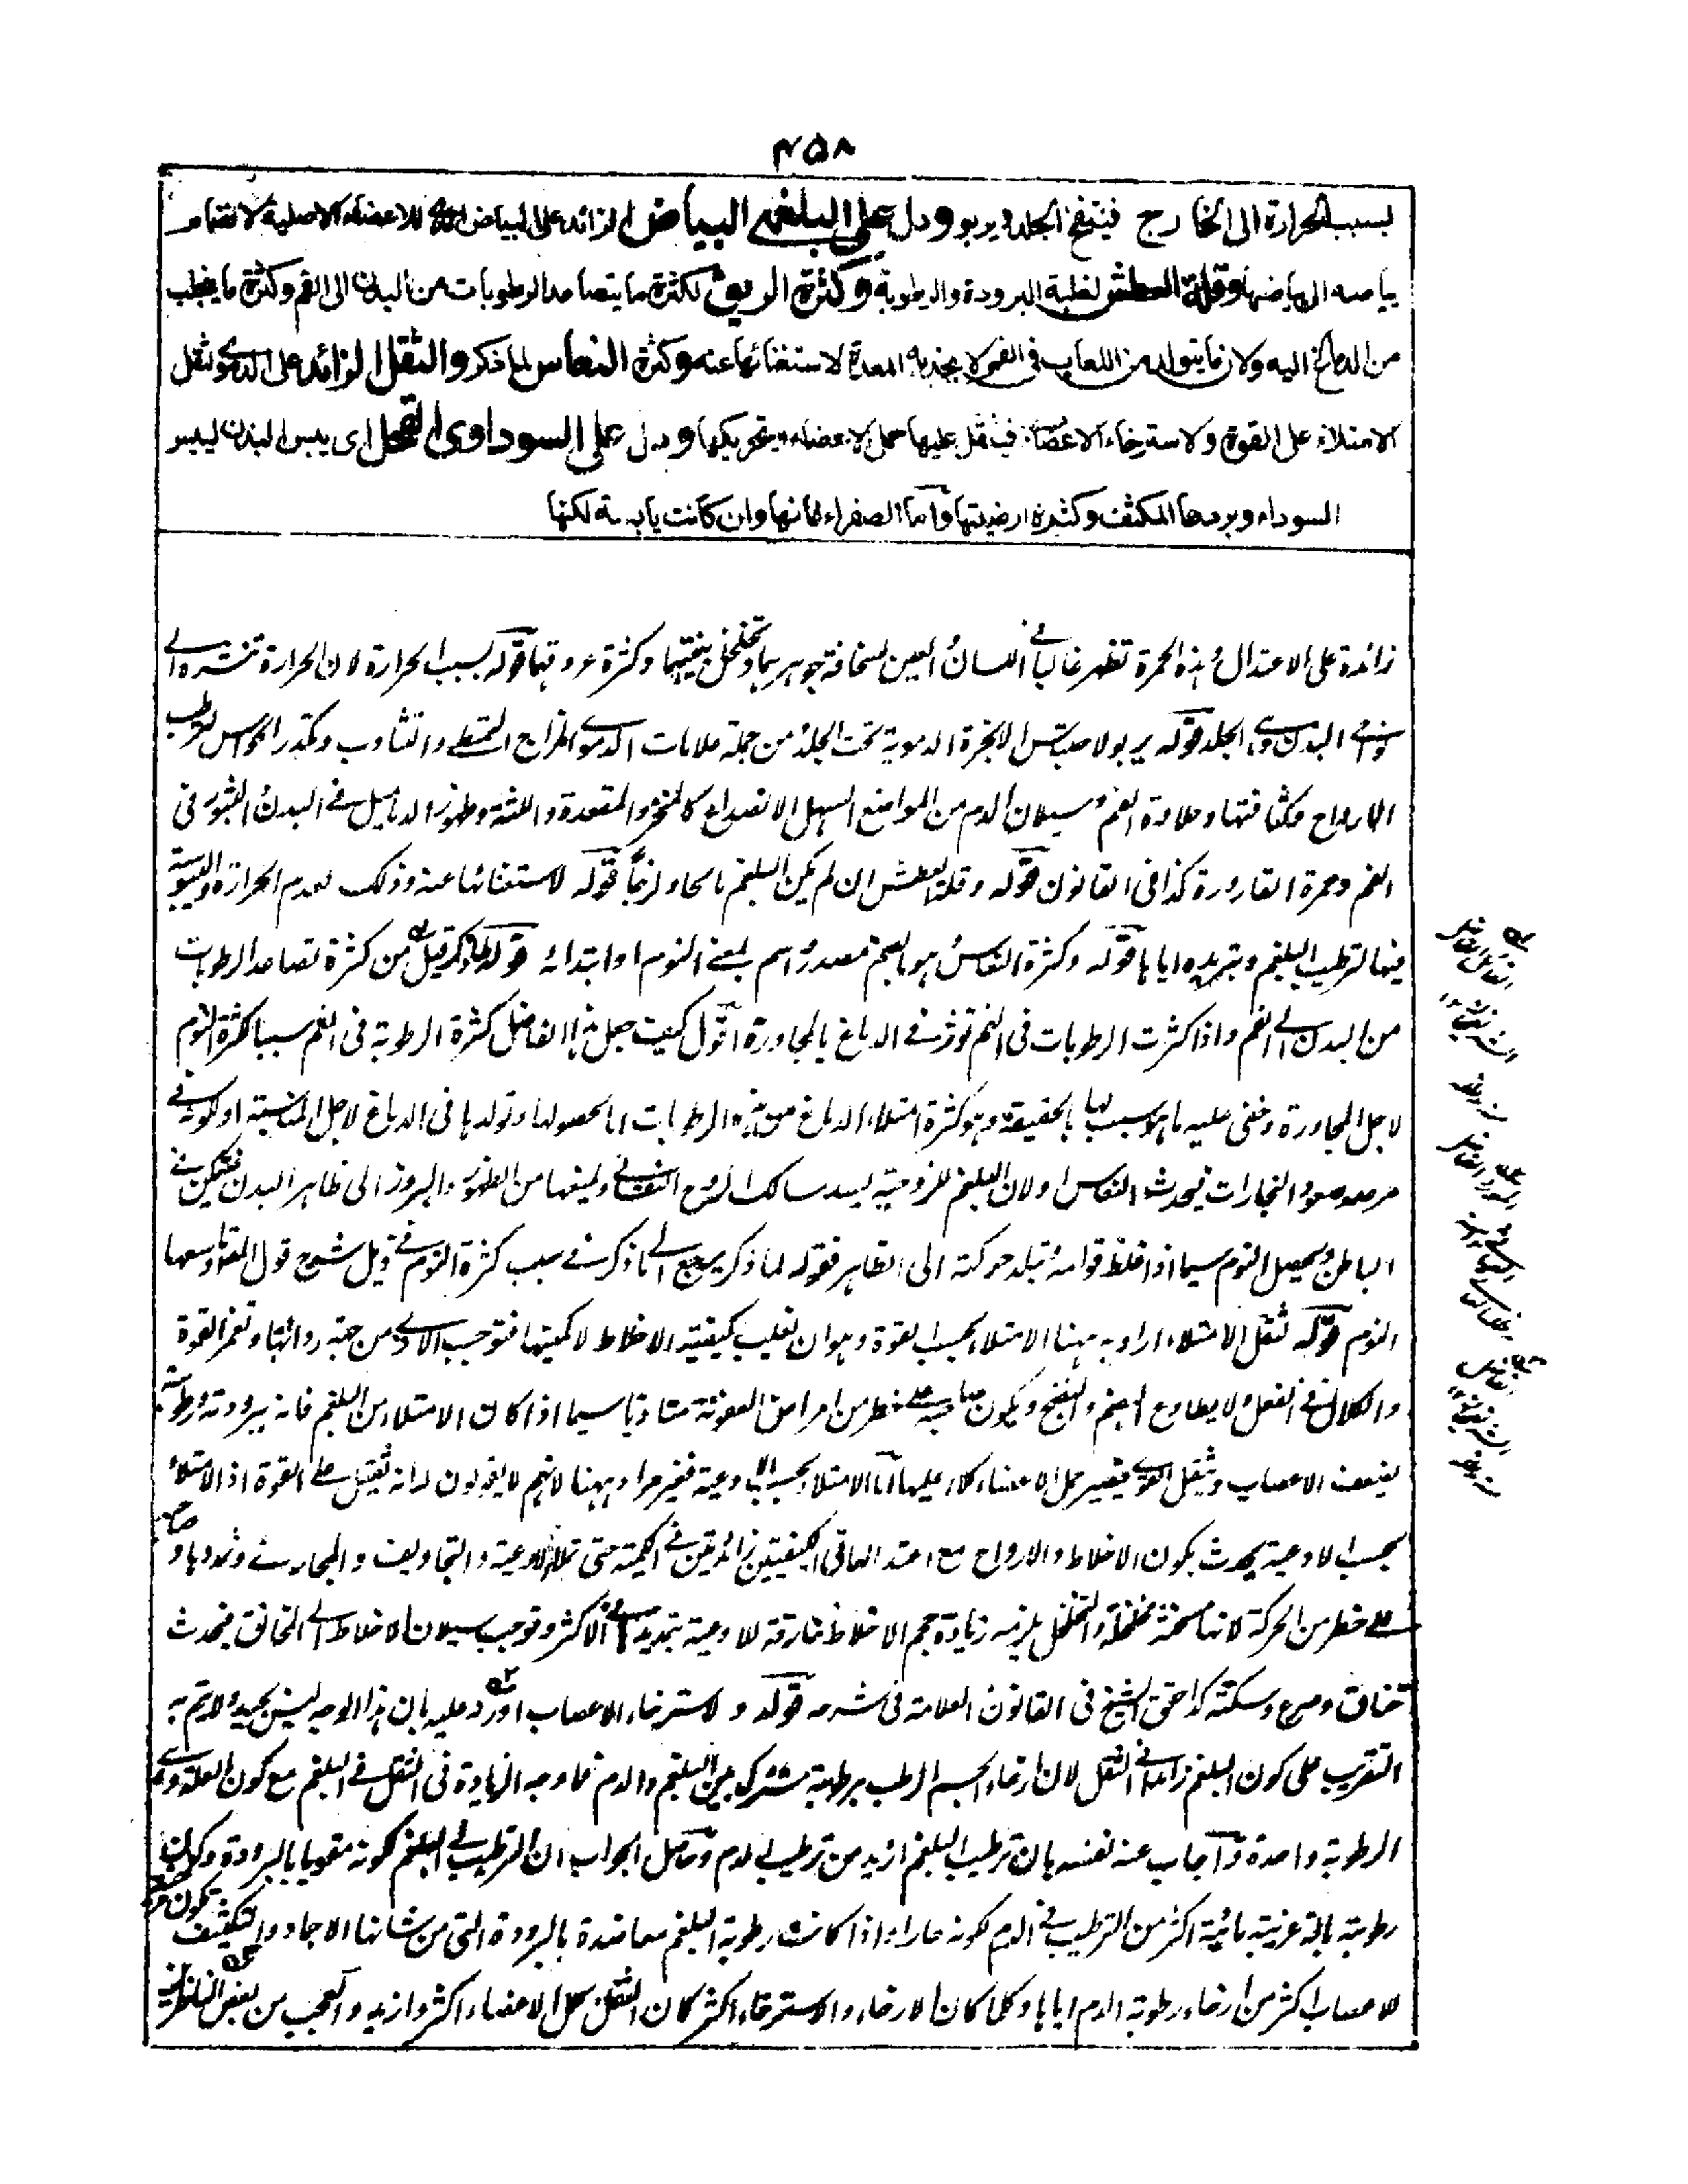 ۴۵۸
بسبب الحرارة الى الخارج فينتفخ الجلد ويربو ودل على البلغمي البياض الزائد على البياض للاعضاء الاصلية لانضمام
بياضه الى بياضها وقلة العطش لغلبة البرودة والرطوبة وكثرة الريق لكثرة ما يتصاعد الرطوبات من البدن الى الفم وكثرة ما يتحلب
من الدماغ اليه ولان ما يتولد من اللعاب فى الفم لا يجذبه المعدة لاستغنائها عنه وكثرة النعاس لما ذكر والثقل الزائد على الدموى لثقل
الامتلاء على القوة ولاسترخاء الاعضاء فيثقل عليها حمل الاعضاء وتحريكها ودل على السوداوى القحل اى يبس البدن ليبس
السوداء وبردها المكثف وكثرة ارضيتها واما الصفراء فانها وان كانت يابسة لكنها
زائدة على الاعتدال وهذه الحمرة تظهر غالبا فى اللسان والعين لسخافة جوهرهما وتخلخل بنيتهما وكثرة عروقهما قوله بسبب الحرارة لان الحرارة تنشره الى
البدن الجلد قوله يربو لاحتباس الابخرة الدموية تحت الجلد من جملة علامات الدموى المزاج التمطى والتثاوب وتكدر الحواس لترطب
الارواح وكثافتها وحلاوة الفم وسيلان الدم من المواضع السهل الانصداع كالمنخر والمقعدة واللثة وظهور الدماميل فى البدن والبثور فى
الفم وحمرة القارورة كذا فى القانون قوله وقلة العطش ان لم يكن البلغم مالحا ولزجا قوله لاستغنائها عنه وذلك لعدم الحرارة واليبوسة
فيها لترطيب البلغم وتبريده اياها قوله وكثرة النعاس هو بالضم مصدر او اسم بمعنى النوم او ابتدائه قوله لما ذكر قيل من كثرة تصاعد الرطوبات
من البدن الى الفم واذا كثرت الرطوبات فى الفم تؤثر فى الدماغ بالمجاورة اقول كيف جعل هذا الفاضل كثرة الرطوبة فى الفم سببا لكثرة النوم
لاجل المجاورة وخفى عليه ما هو سبب لها بالحقيقة وهو كثرة امتلاء الدماغ من هذه الرطوبات اما لحصولها وتولدها فى الدماغ لاجل المناسبة او لكونه فى
مرصد صعود البخارات فيحدث النعاس او لان البلغم للزوجته يسد مسالك الروح النفسانى ويمنعها من الظهور والبروز الى ظاهر البدن فيتمكن فى
الباطن ويحصل النوم سيما اذا غلظ قوامه وتبلد حركته الى الظاهر فقوله لما ذكر يرجع الى ما ذكر فى سبب كثرة النوم فى ذيل شرح قول المصنف
النوم قوله لثقل الامتلاء اراد به ههنا الامتلاء بحسب القوة وهو ان تغلب كيفية الاخلاط لا كميتها فتوجب الاذى من جهة ردائتها وتغمر القوة
والكلال فى الفعل ولا يطاوع الهضم والنضج ويكون صاحبه على خطر من امراض العفونة متاذيا سيما اذا كان الامتلاء من البلغم فانه ببرودته ورطوبته
يضعف الاعصاب ويثقل القوى فيصير حمل الاعضاء كلا عليها اما الامتلاء بحسب الاوعية فغير مراد ههنا لانهم لا يقولون له انه ثقيل على القوة اذ الامتلاء
بحسب الاوعية يحدث بكون الاخلاط والارواح مع اعتدالها فى الكيفيتين زائدتين فى الكمية حتى تملأ الاوعية والتجاويف والمجارى وتمددها و
على خطر من الحركة لانها مسخنة مخلخلة والتخلخل يلزمه زيادة حجم الاخلاط خارقة للاوعية بتمديدها فى الاكثر وتوجب سيلان الاخلاط الى المخانق فيحدث
خناق وصرع وسكتة كذا حقق الشيخ فى القانون العلامة فى شرحه قوله ولاسترخاء الاعصاب اورد عليه بان هذا الوجه ليس بجيد ولا يتم به
التقريب على كون البلغم زائدا فى الثقل لان ارخاء الجسم الرطب برطوبة مشترك بين البلغم والدم فما وجه الزيادة فى الثقل فى البلغم مع كون العلة وهى
الرطوبة واحدة واجاب عنه نفسه بان ترطيب البلغم ازيد من ترطيب الدم وحاصل الجواب ان الترطيب فى البلغم لكونه مقويا بالبرودة ولكون
رطوبته بالة غريبة مائية اكثر من الترطيب فى الدم لكونه حارا واذا كانت رطوبة البلغم معاضدة بالبرودة التى من شانها الاجماد والتكثيف يكون
للاعصاب اكثر من ارخاء رطوبة الدم اياها وكلما كان الارخاء والاسترخاء اكثر كان الثقل لكل الاعضاء اكثر وازيد والعجب من بعض الناظرين